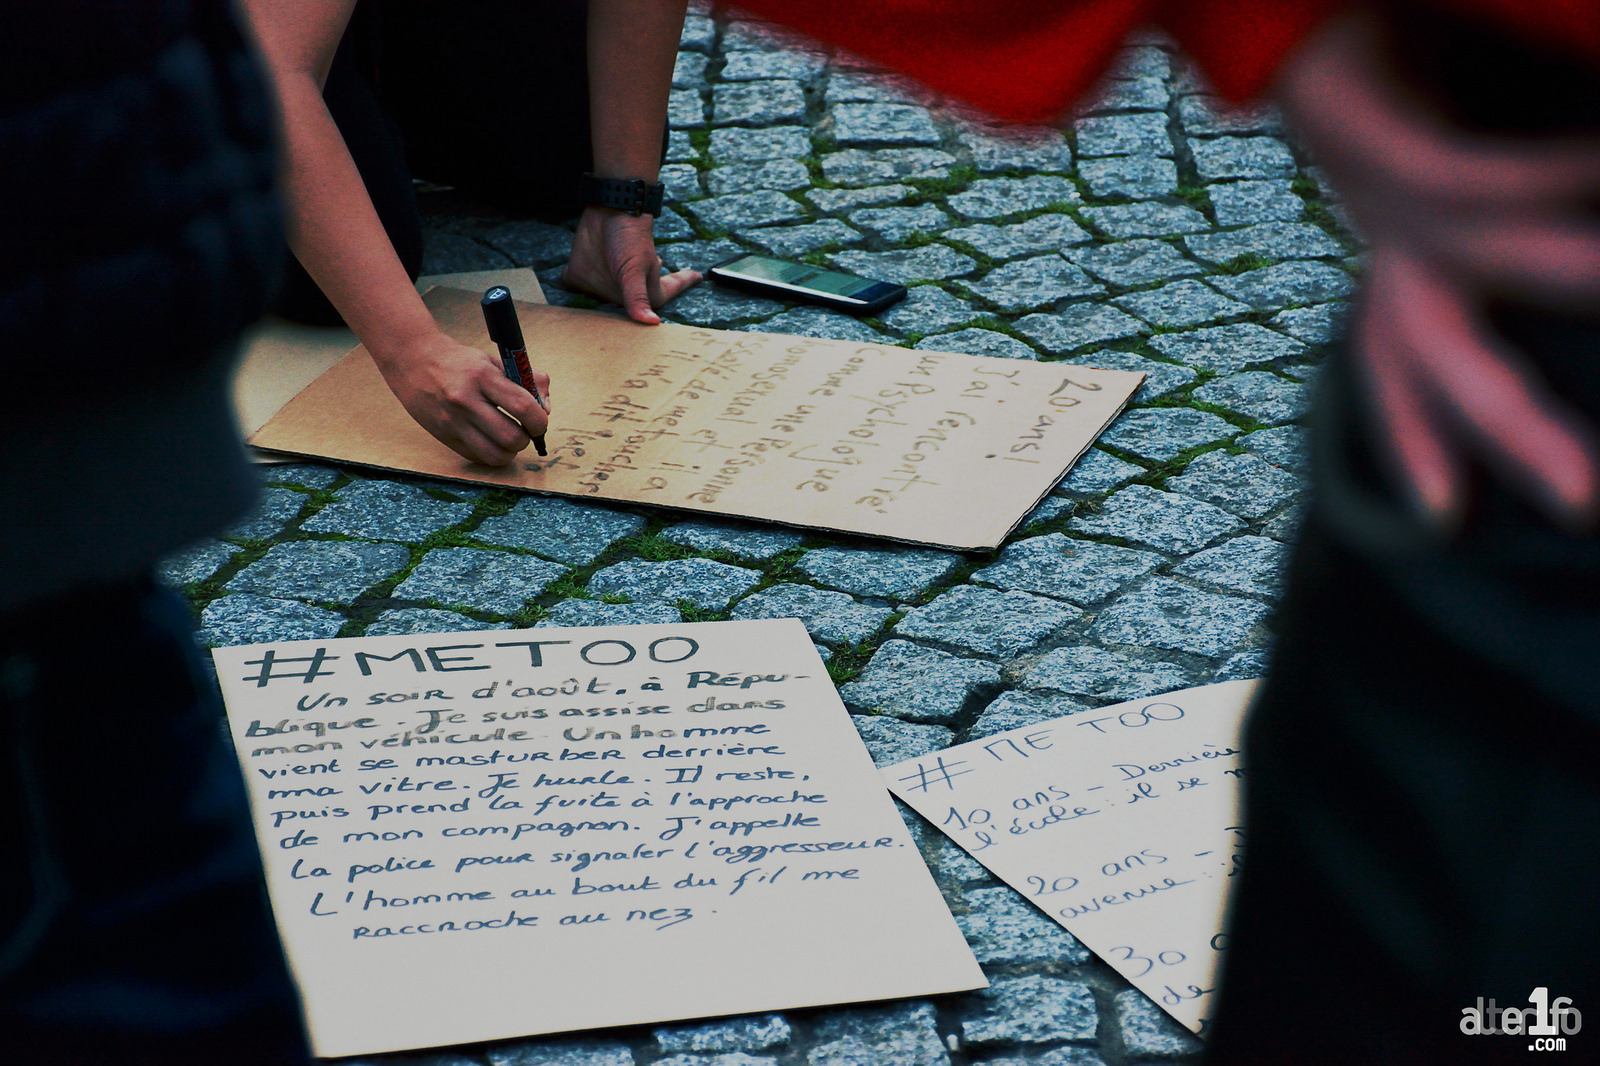 20 ans!
J'ai rencontré
un Psychologue
comme une Personne
homosexuel et il a
essayé de me toucher
et il m'a dit
#METOO
Un soir d'août, à Répu-
blique. Je suis assise dans
mon véhicule. Un homme
vient se masturber derrière
ma vitre. Je hurle. Il reste,
puis prend la fuite à l'approche
de mon compagnon. J'appelle
la police pour signaler l'aggresseur.
L'homme au bout du fil me
raccroche au nez.
# ME TOO
10 ans - Derrière
l'école : il se
20 ans -
avenue :
30
de
alter1fo
.com